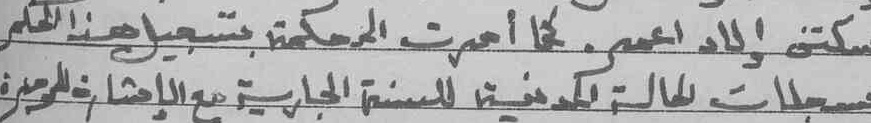 أولاد اعمر. كما أمرت المحكمة بتسجيل هذا الحكم
سجلات الحالة المدنية للسنة الجارية مع الإشارة